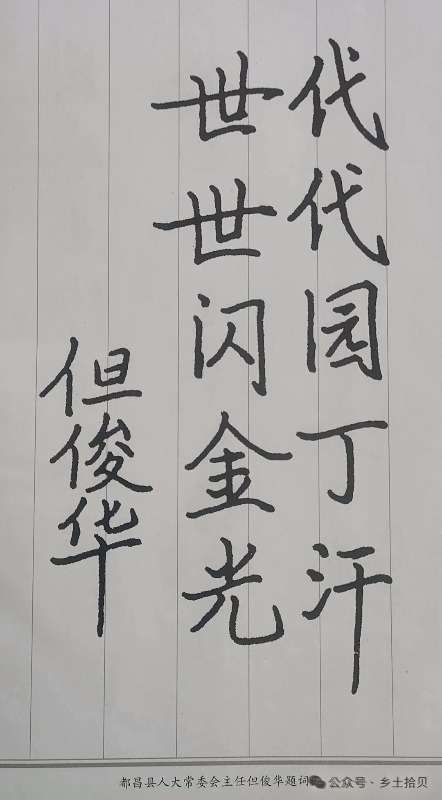 代代园丁汗
世世闪金光
但俊华
都昌县人大常委会主任但俊华题词
公众号·乡土拾贝